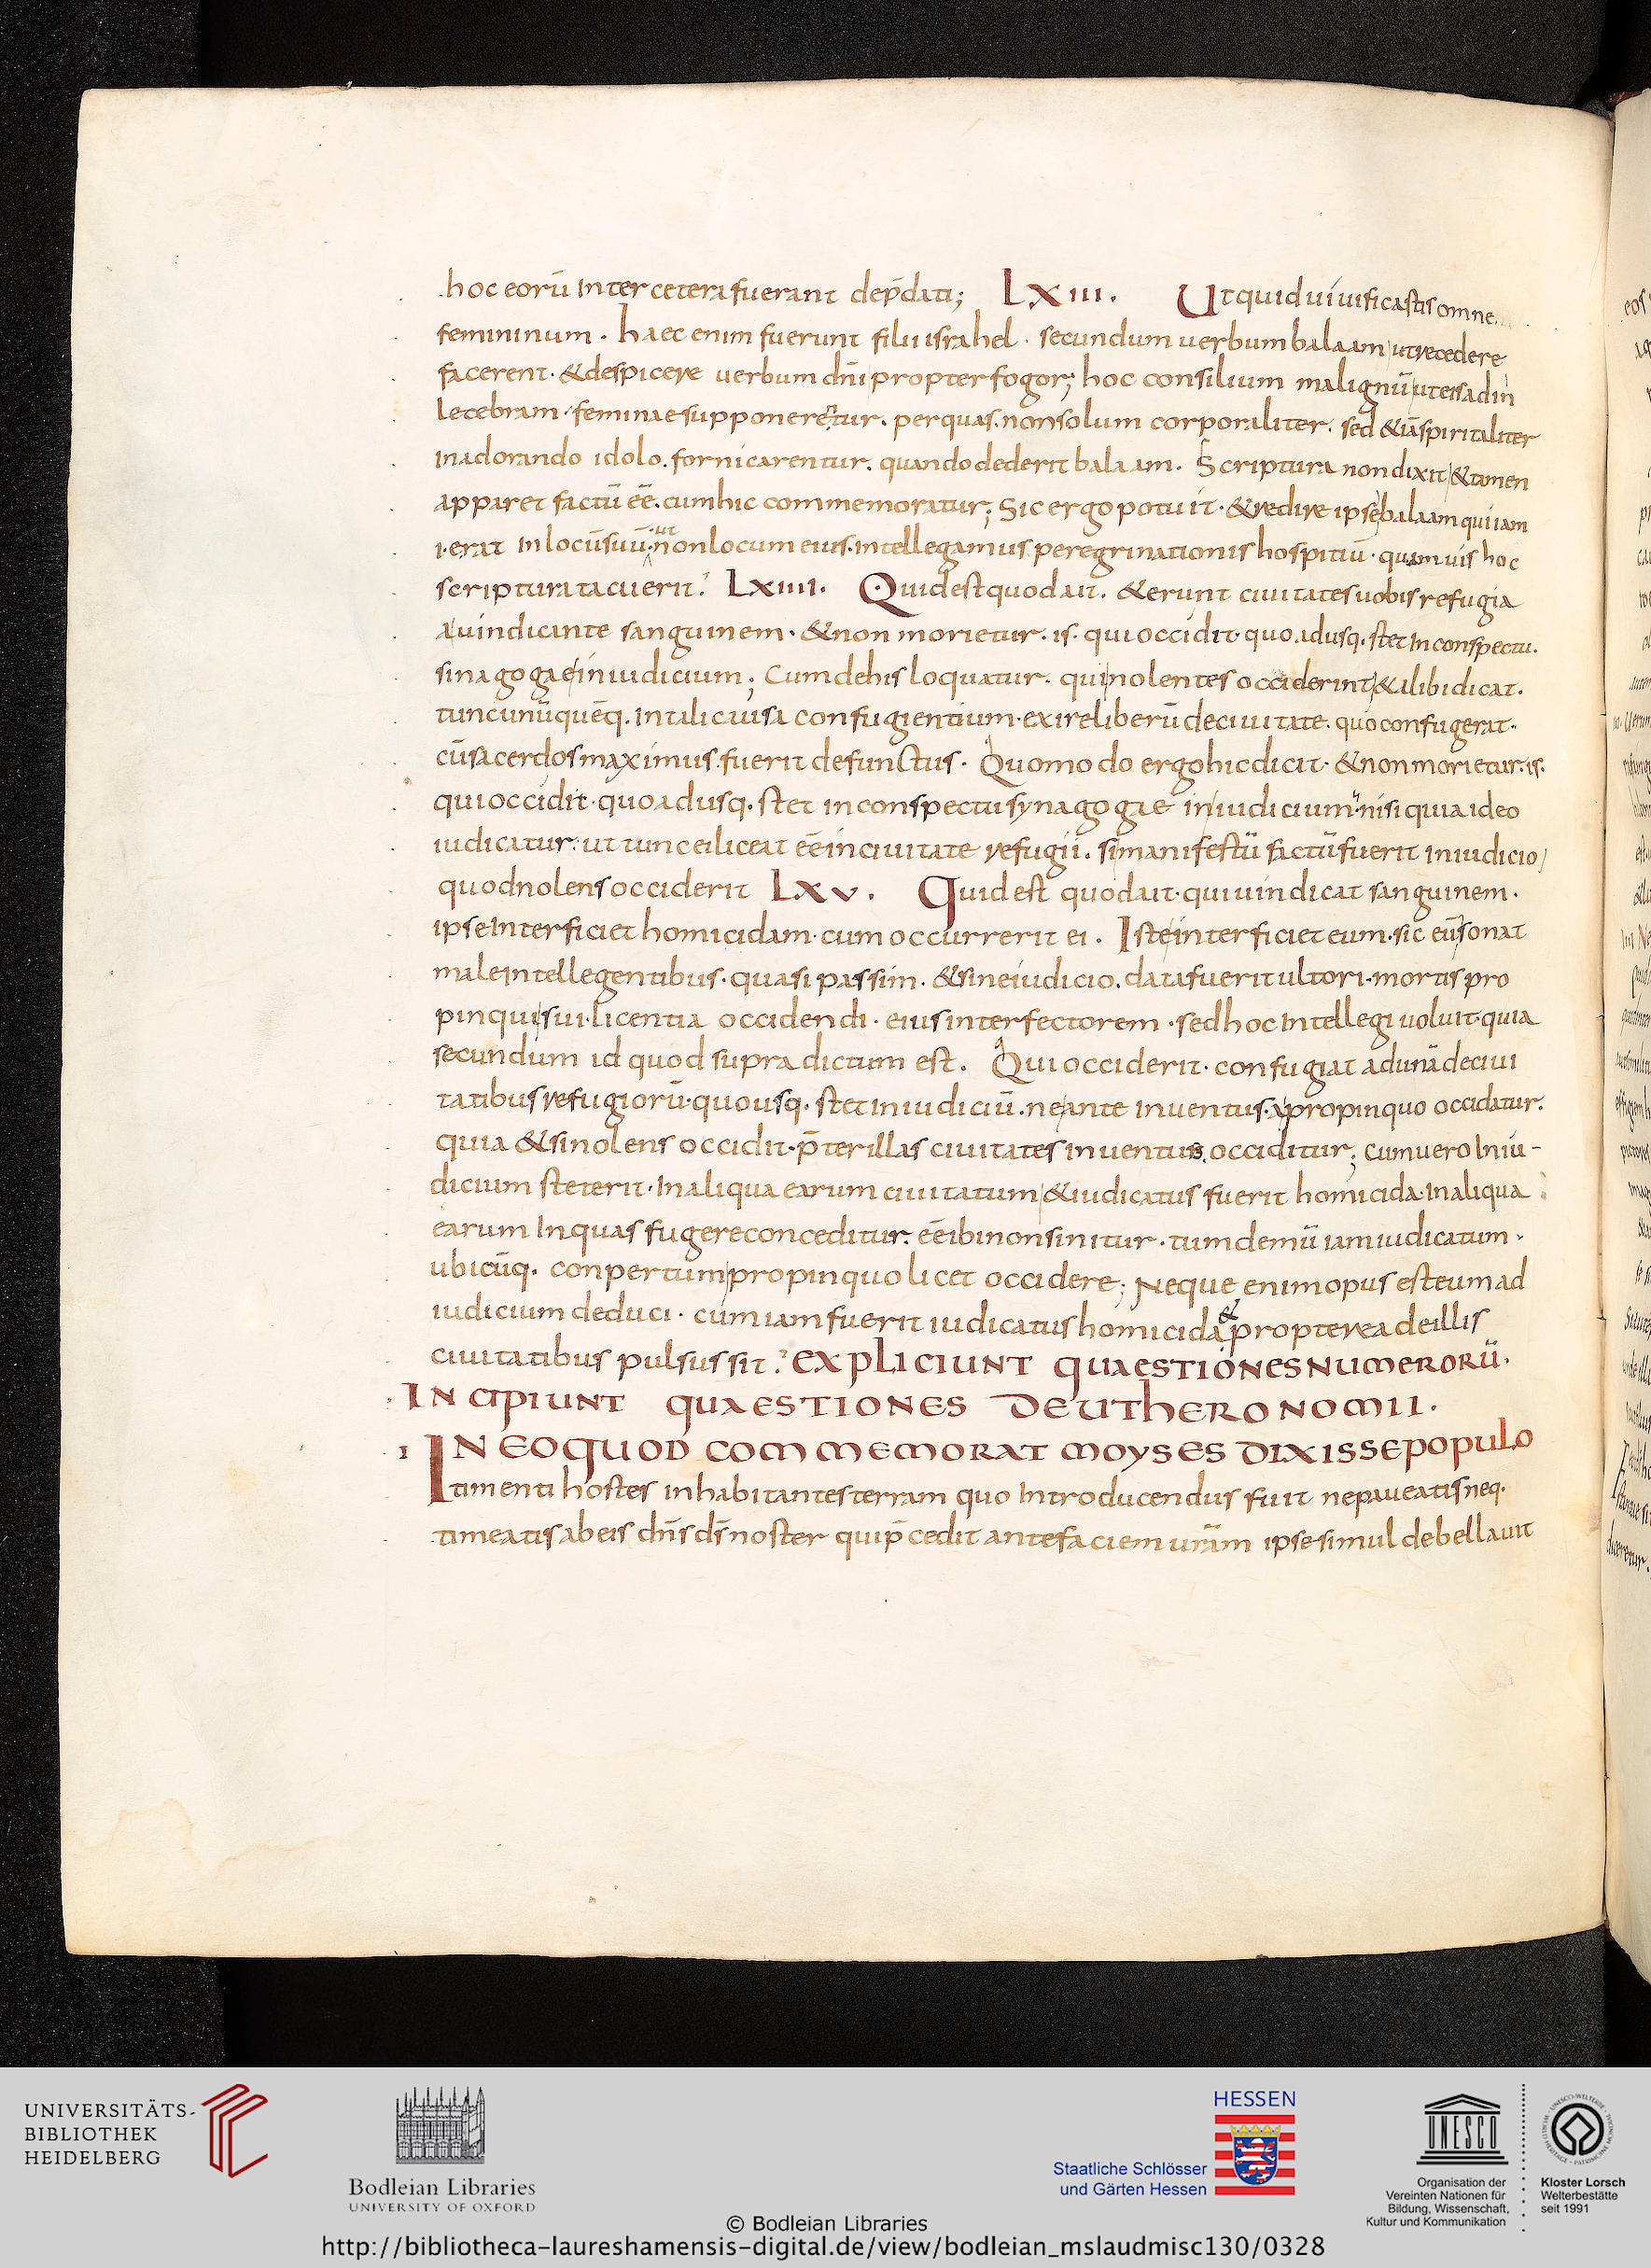 hoc eorū inter cetera fuerant dep̄dati; LXIII. Ut quid uiuificastis omne
femininum. haec enim fuerunt filii israhel. secundum uerbum balaam ut recedere
facerent. & despicere uerbum dn̄i propter fogor; hoc consilium malignū ut eis ad in
lecebram. feminae supponerentur. per quas. non solum corporaliter. sed & iā spiritaliter
in adorando idolo. fornicarentur. quando dederit balaam. Scriptura non dixit & tamen
apparet factū eē. cum hic commemoratur; Sic ergo potuit. & redire ipse balaam qui iam
i.erat in locū suū. ut non locum eius. intellegamus peregrinationis hospitiū. quamuis hoc
scriptura tacuerit. LXIIII. Quid est quod ait. & erunt ciuitates uobis refugia
a uindicante sanguinem. & non morietur. is. qui occidit. quoadusq. stet in conspectu.
sinagogae in iudicium; Cum de his loquatur. qui nolentes occiderint & alibi dicat.
tunc unūquēq. in tali causa confugientium. exire liberū de ciuitate. quo confugerat.
cū sacerdos maximus. fuerit defunctus. Quomodo ergo hic dicit. & non morietur. is.
qui occidit. quoadusq. stet in conspectu synagogae in iudicium. nisi quia ideo
iudicatur. ut tunc ei liceat eē in ciuitate refugii. si manifestū factū fuerit in iudicio
quod nolens occiderit LXV. Quid est quod ait. qui uindicat sanguinem.
ipse interficiet homicidam. cum occurrerit ei. Iste interficiet eum. sic eū sonat
male intellegentibus. quasi passim. & sine iudicio. data fuerit ultori. mortis pro
pinqui sui. licentia occidendi. eius interfectorem. sed hoc intellegi uoluit. quia
secundum id quod supra dictum est. Qui occiderit. confugiat ad unā de ciui
tatibus refugiorū. quousq. stet in iudiciū. ne ante inuentus. a propinquo occidatur.
quia & si nolens occidit. p̄ter illas ciuitates inuentus. occiditur; cum uero in iu-
dicium steterit. in aliqua earum ciuitatum & iudicatus fuerit homicida. in aliqua
earum in quas fugere conceditur. eē ibi non sinitur. tum demū iam iudicatum.
ubicūq. conpertum propinquo licet occidere; Neque enim opus est eum ad
iudicium deduci. cum iam fuerit iudicatus homicida & propterea de illis
ciuitatibus pulsus sit. EXPLICIUNT QUAESTIONES NUMERORŪ.
INCIPIUNT QUAESTIONES DEUTHERONOMII.
I IN EO QUOD COMMEMORAT MOYSES DIXISSE POPULO
timenti hostes inhabitantes terram quo introducendus fuit ne paueatis neq.
timeatis ab eis dn̄s ds̄ noster qui p̄cedit ante faciem ur̄am ipse simul debellauit
UNIVERSITÄTS-
BIBLIOTHEK
HEIDELBERG
Bodleian Libraries
UNIVERSITY OF OXFORD
HESSEN
Staatliche Schlösser
und Gärten Hessen
UNESCO
Organisation der
Vereinten Nationen für
Bildung, Wissenschaft,
Kultur und Kommunikation
Kloster Lorsch
Welterbestätte
seit 1991
© Bodleian Libraries
http://bibliotheca-laureshamensis-digital.de/view/bodleian_mslaudmisc130/0328